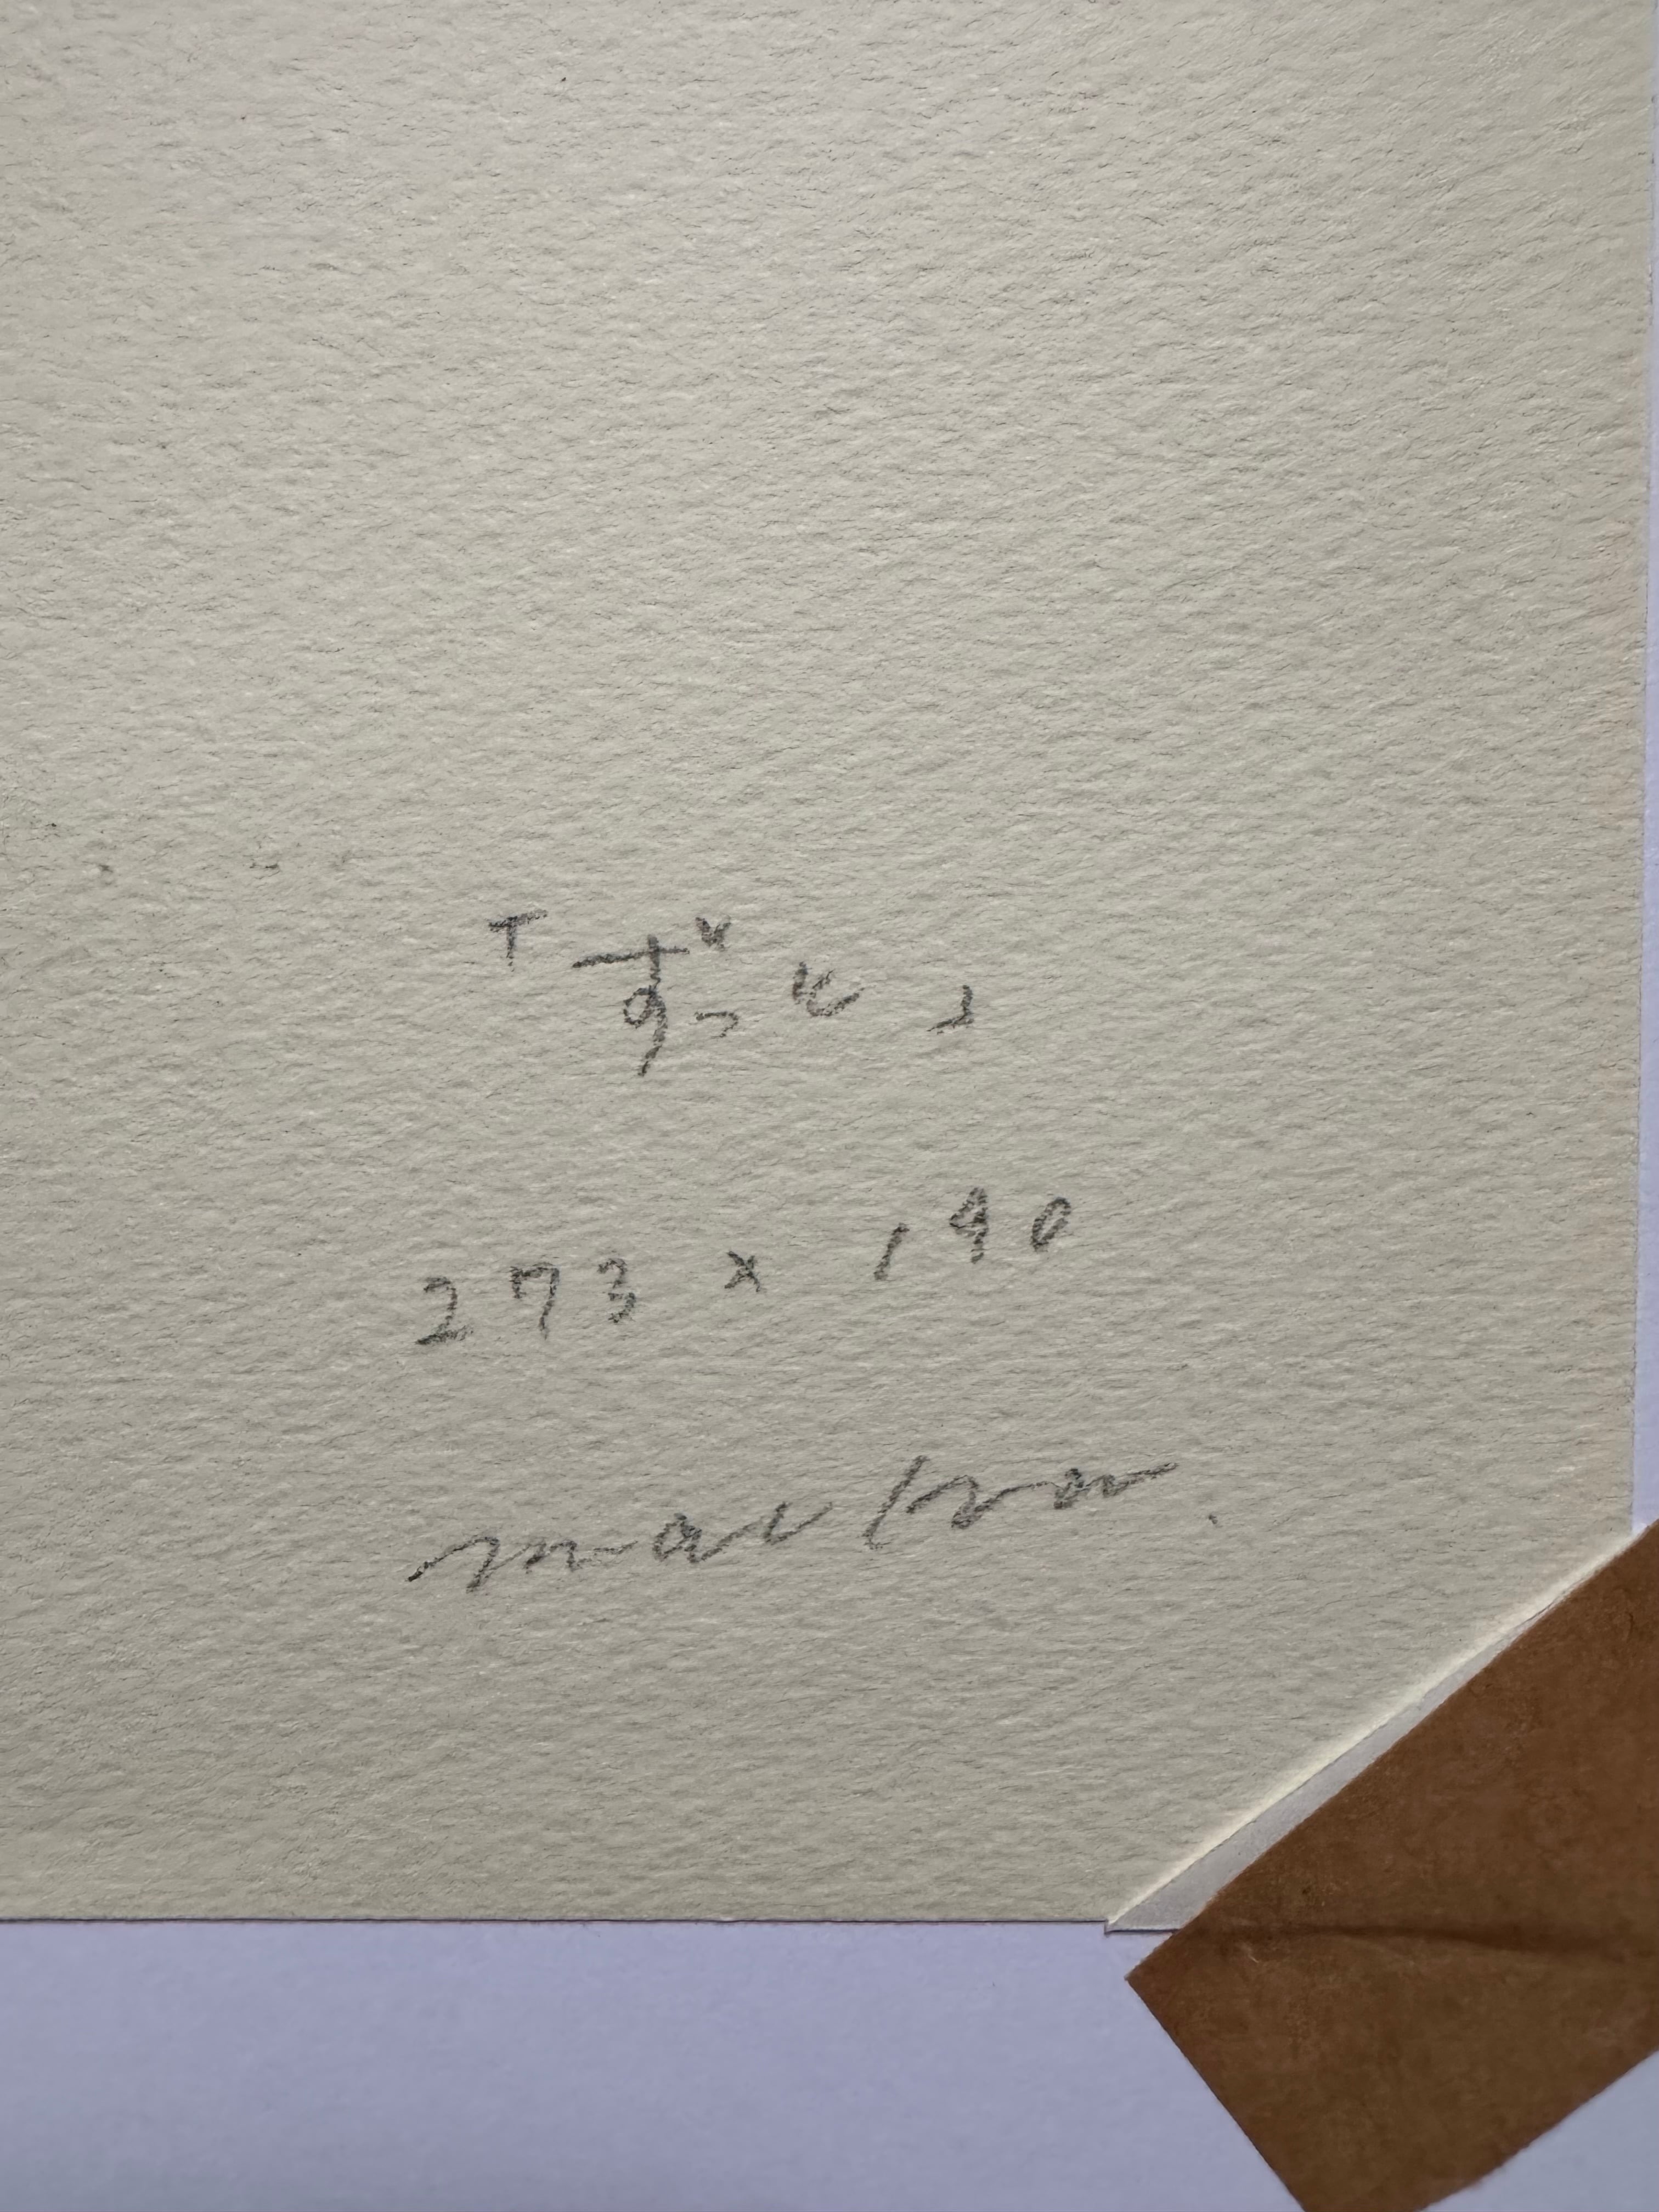 「ずっと」
273 × 190